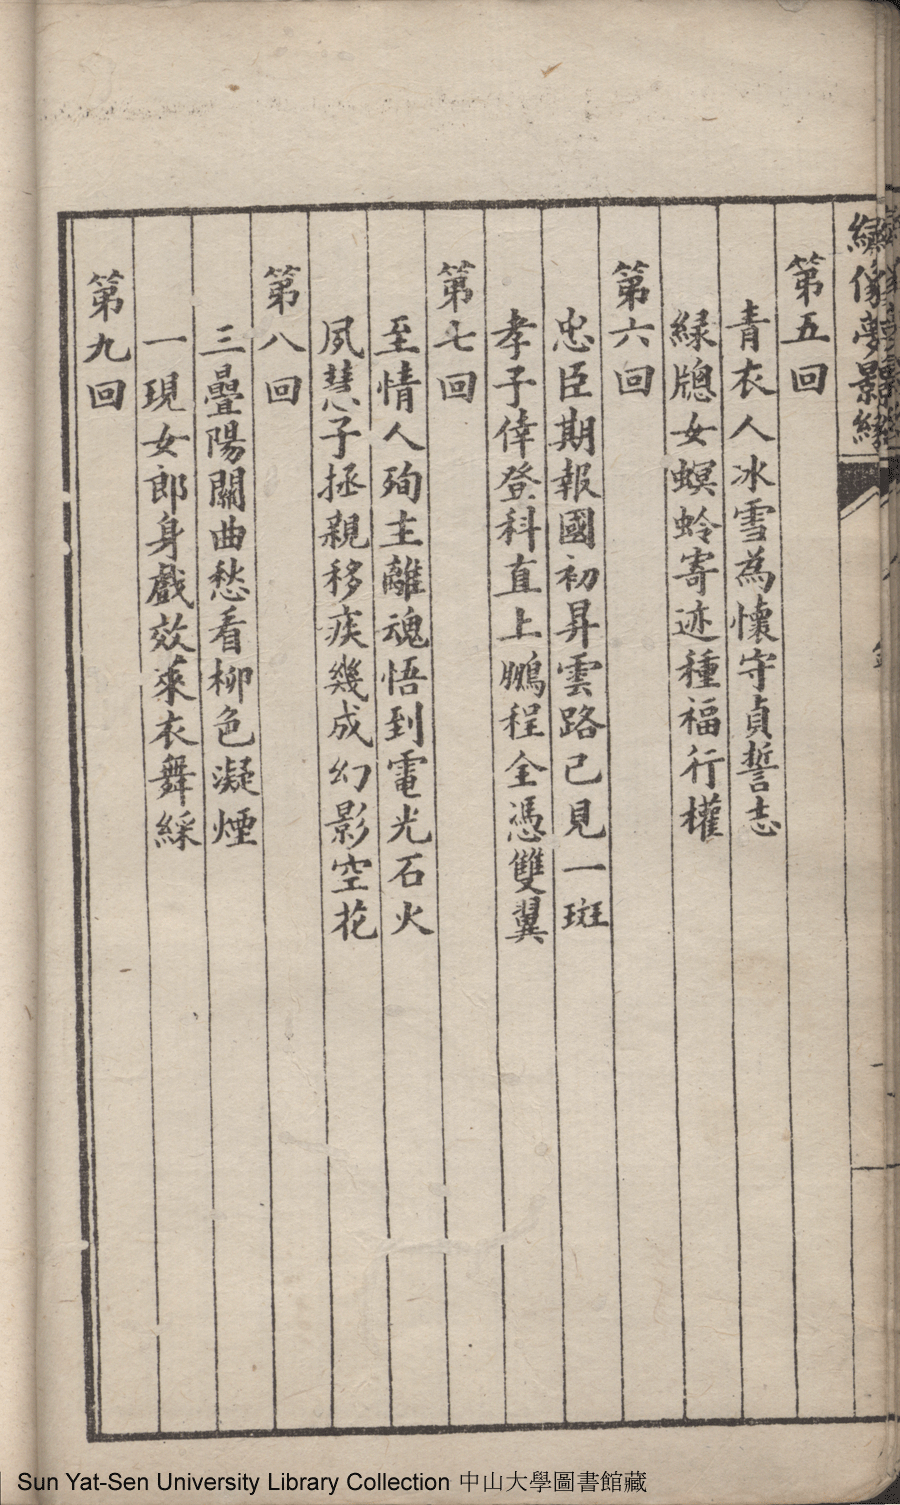 繡像夢影緣
第五回
青衣人冰雪為懷守貞誓志
緑牕女螟蛉寄迹種福行權
第六回
忠臣期報國初昇雲路已見一斑
孝子倖登科直上鵬程全憑雙翼
第七回
至情人殉主離魂悟到電光石火
夙慧子拯親移疾幾成幻影空花
第八回
三疊陽關曲愁看柳色凝煙
一現女郎身戲效萊衣舞綵
第九回
Sun Yat-Sen University Library Collection 中山大學圖書館藏